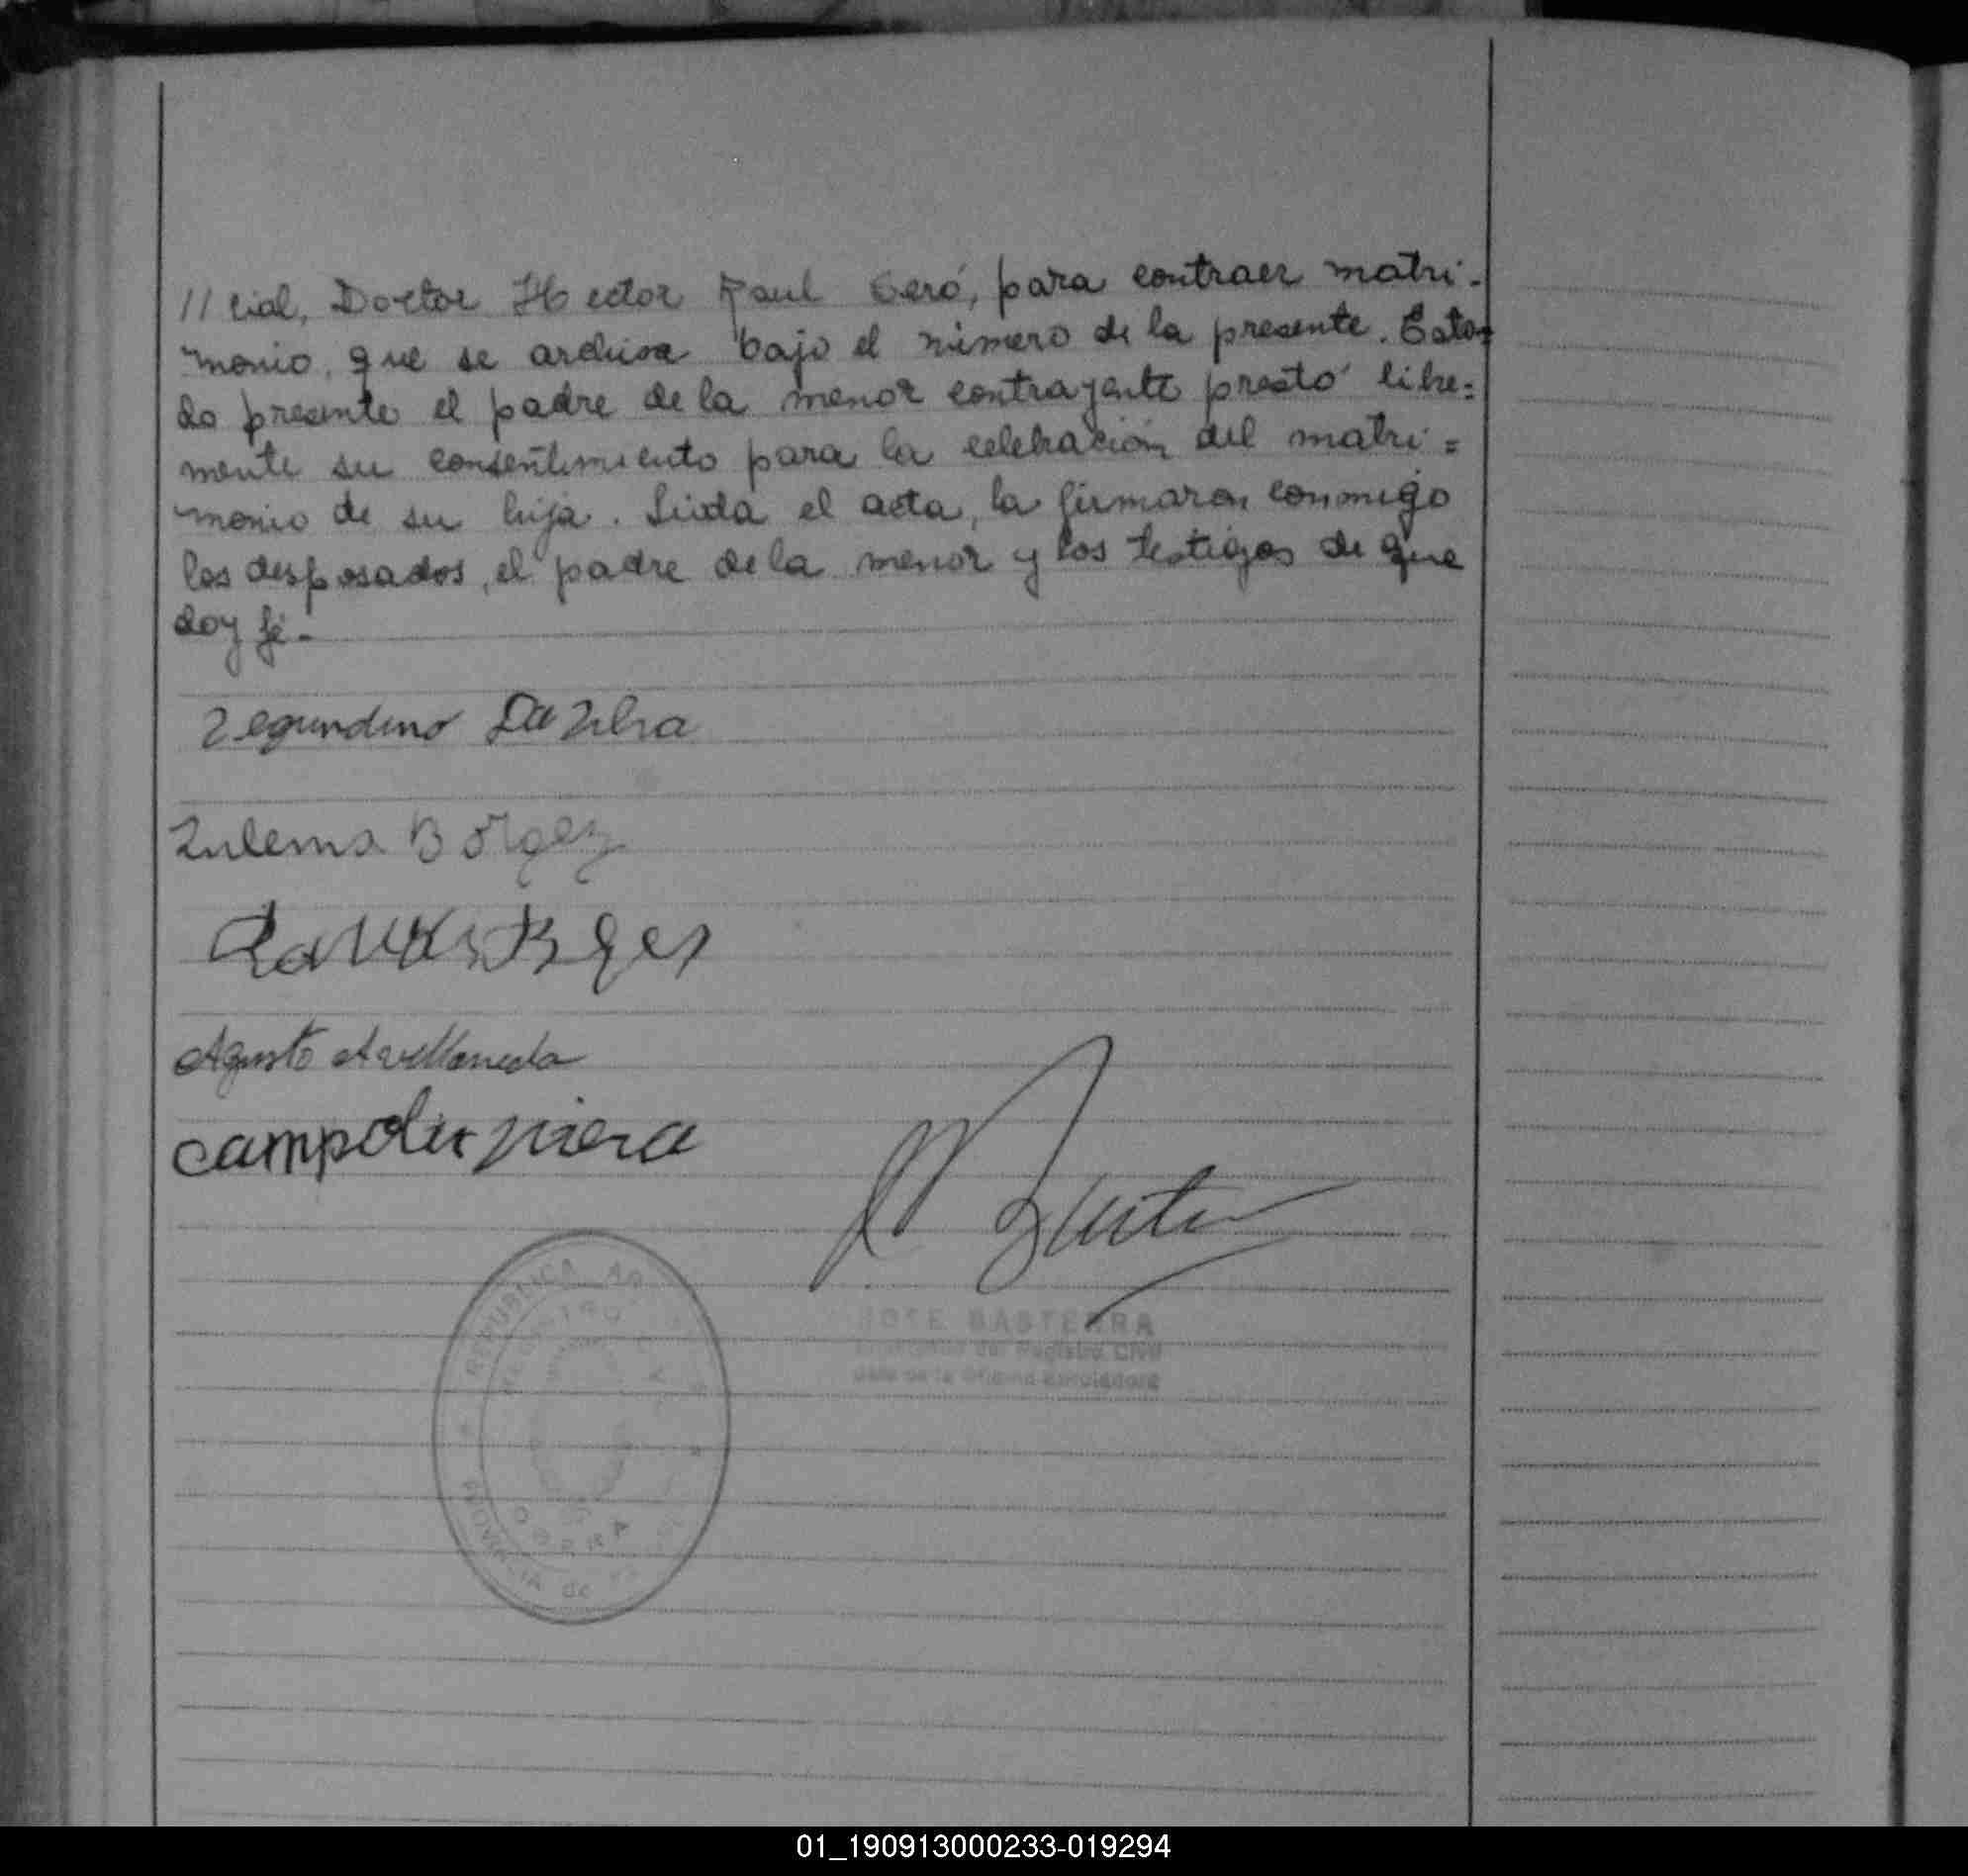 // cial, Doctor Hector Raul Seró, para contraer matri-
monio, que se archiva bajo el número de la presente. Estan-
do presente el padre de la menor contrayente prestó libre=
mente su consentimiento para la celebración del matri=
monio de su hija. Leída el acta, la firmaron conmigo
los desposados, el padre de la menor y los testigos de que
doy fé.-
Segundino Da Silva
Zulema Borgez
Agusto Avellaneda
JOSE BASTERRA
del Registro Civil
REPUBLICA AR
REGISTRO CIVIL
OBERA
PROVINCIA de
01_190913000233-019294